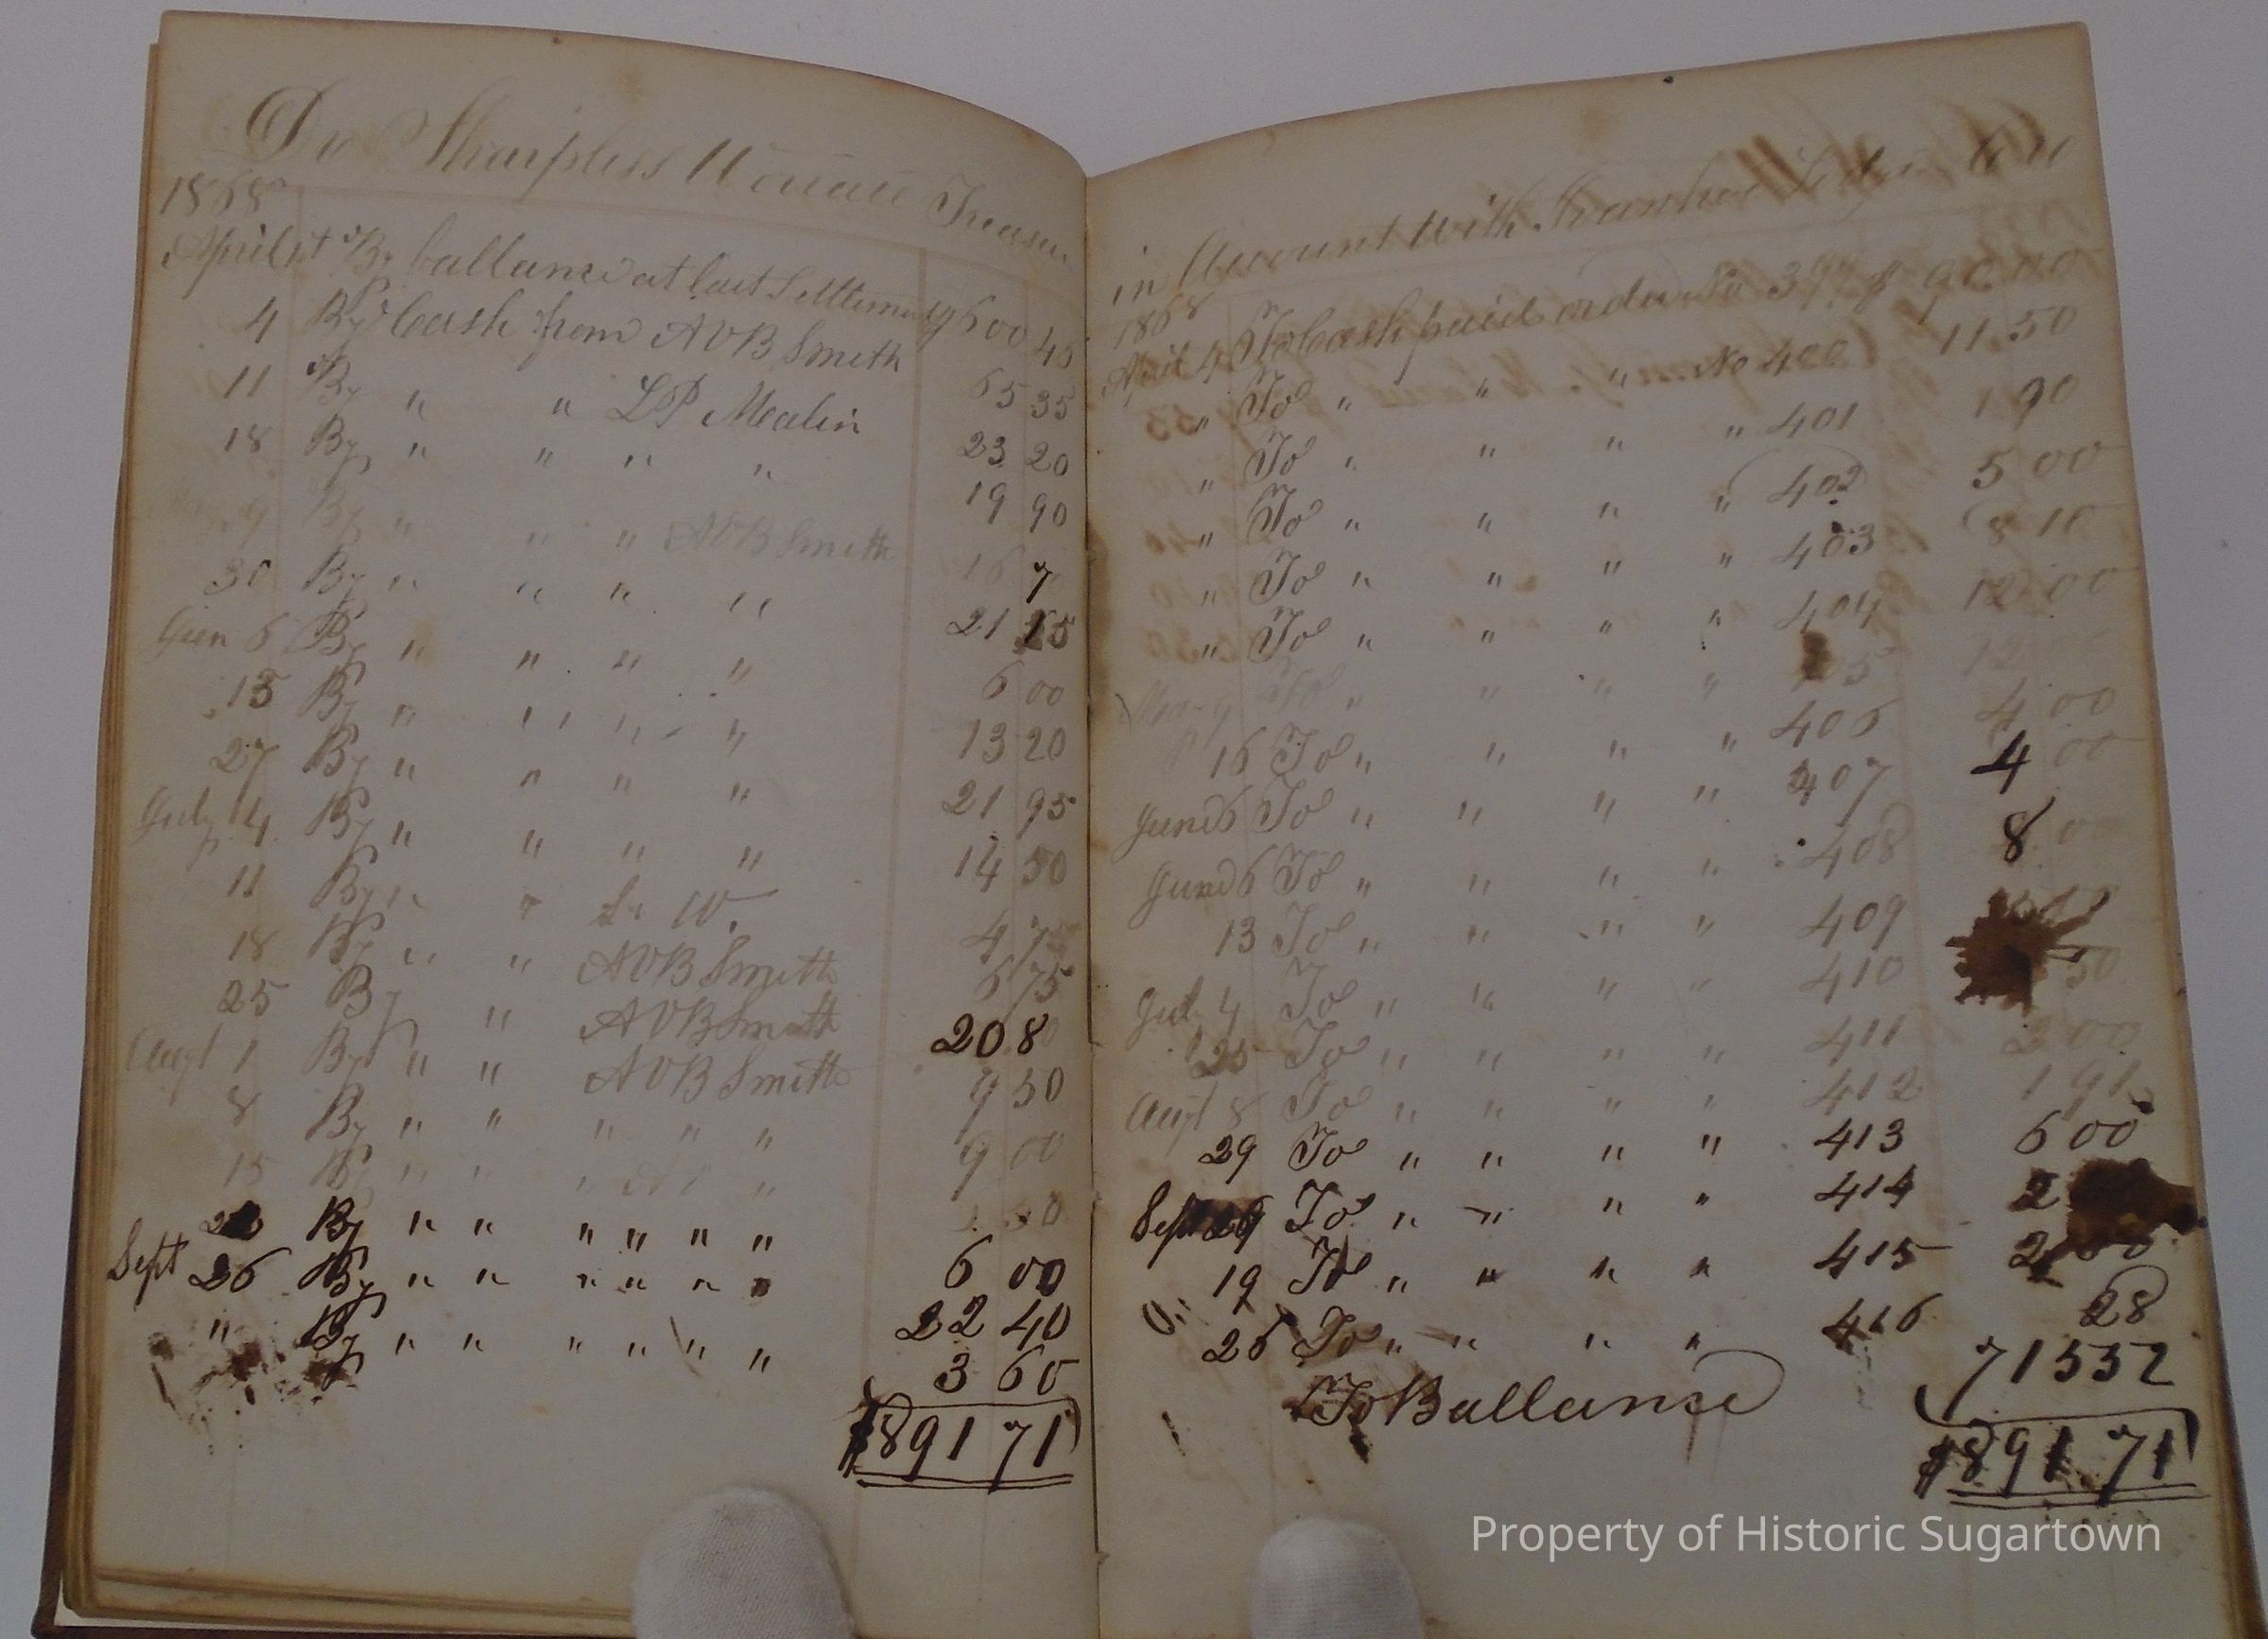 Dr Sharpless Worrall Treasu
1868
April 1st By ballance at last Settlement $600 40
4 By Cash from AVB Smith 65 35
11 By " " LP Mealin 23 20
18 By " " " " 19 90
May 9 By " " " AVB Smith 16 7
30 By " " " " 21 15
Jun 6 By " " " " 6 00
13 By " " " " 13 20
27 By " " " " 21 95
July 4 By " " " " 14 50
11 By " " S. W. 4 7
18 By " " AVB Smith 6 75
25 By " AVB Smith 20 80
Augt 1 By " " AVB Smith 9 50
8 By " " " " " 9 00
15 By " " " "
By " " " " " " 6 00
Sept 26 By " " " " " " 22 40
" By " " " " " " 3 60
$891 71
in Account With
1868
April 4 To Cash paid order No $90.00
" To " " " No 400 11.50
" To " " " " 401 1 90
" To " " " " 402 5 00
" To " " " " 403 8 10
" To " " " " 404 12 00
May 9 To " " " " 12
16 To " " " " 406 4 00
June 6 To " " " " 407 4 00
June 6 To " " " " 408 8 00
13 To " " " " 409
Jul 4 To " " " " 410 50
25 To " " " " 411 2 00
Augt 8 To " " " " 412 1 91
29 To " " " " 413 6 00
Sept To " " " " 414 2
19 To " " " " 415 2
26 To " " " " 416 28
To Ballance 715 52
$891 71
Property of Historic Sugartown